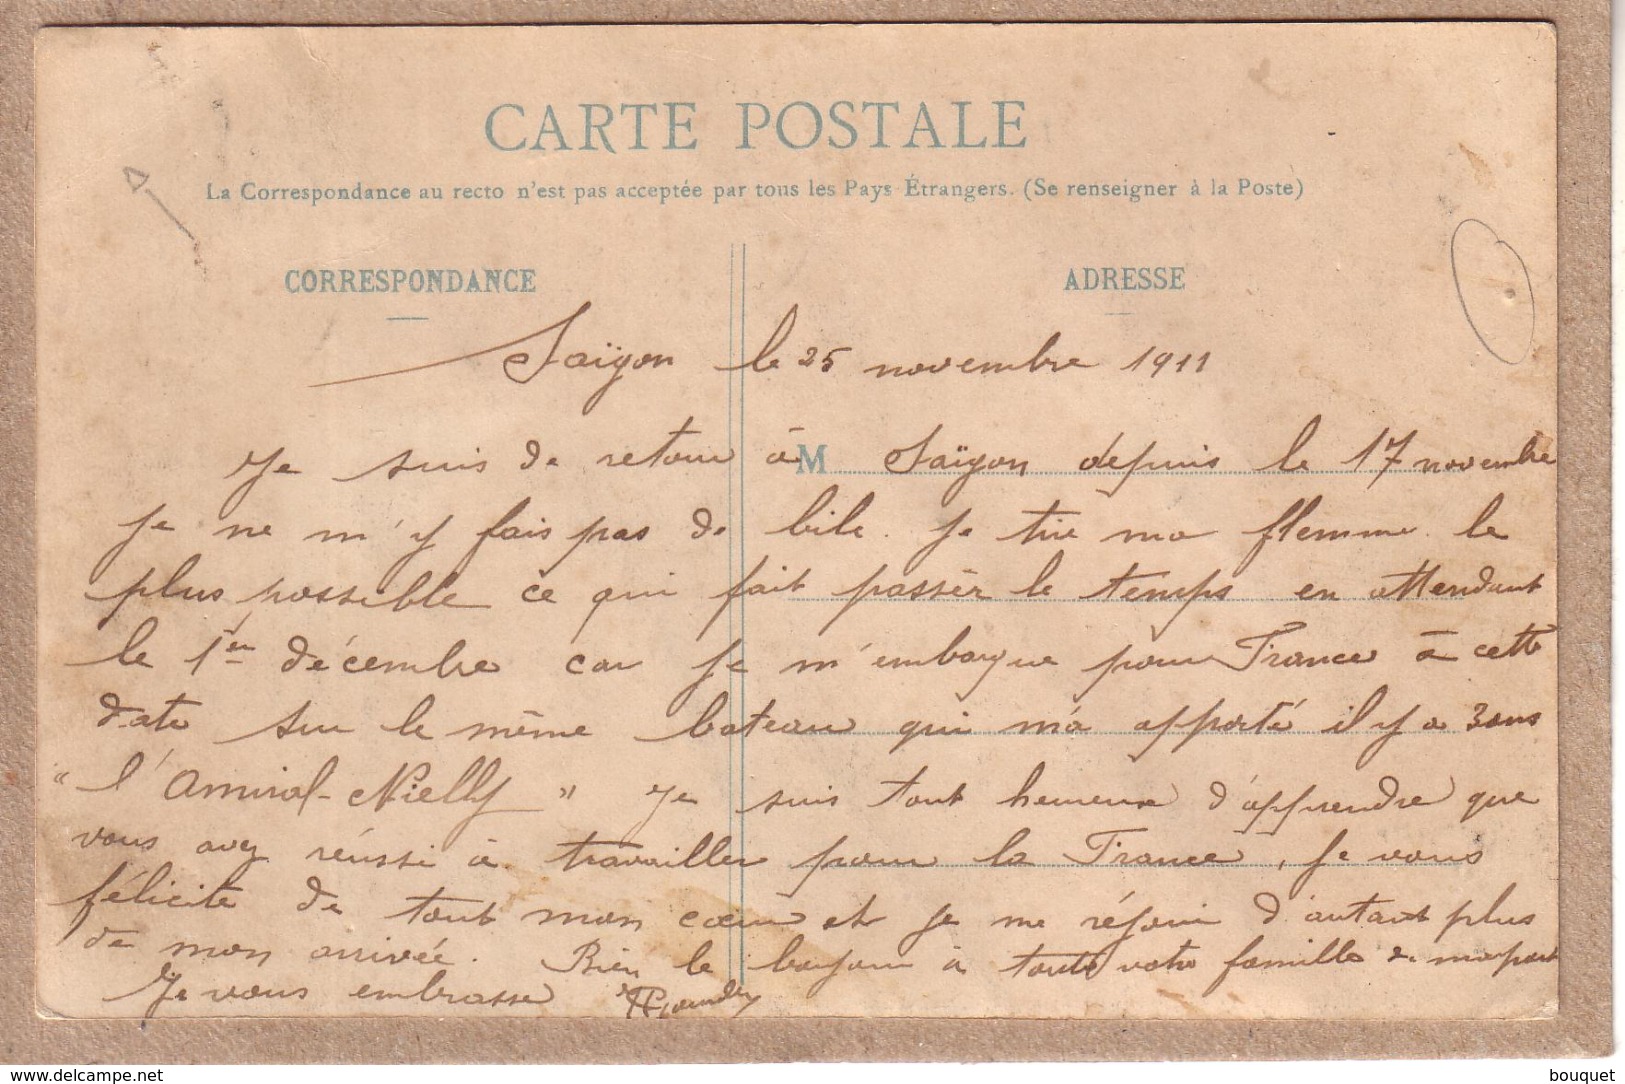 CARTE POSTALE
La Correspondance au recto n'est pas acceptée par tous les Pays Étrangers. (Se renseigner à la Poste)
CORRESPONDANCE
ADRESSE
Saïgon le 25 novembre 1911
M
Je suis de retour à Saïgon depuis le 17 novembre
je ne m'y fais pas de bile. Je tire ma flemme le
plus possible ce qui fait passer le temps en attendant
le 1er décembre car je m'embarque pour France à cette
date sur le même bateau qui m'a apporté il y a 3 ans
"l'Amiral-Nielly" Je suis tout heureux d'apprendre que
vous avez réussi à travailler pour la France, je vous
félicite de tout mon cœur et je me réjoui d'autant plus
de mon arrivée. Bien le bonjour à toute votre famille de ma part
Je vous embrasse
bouquet
www.delcampe.net